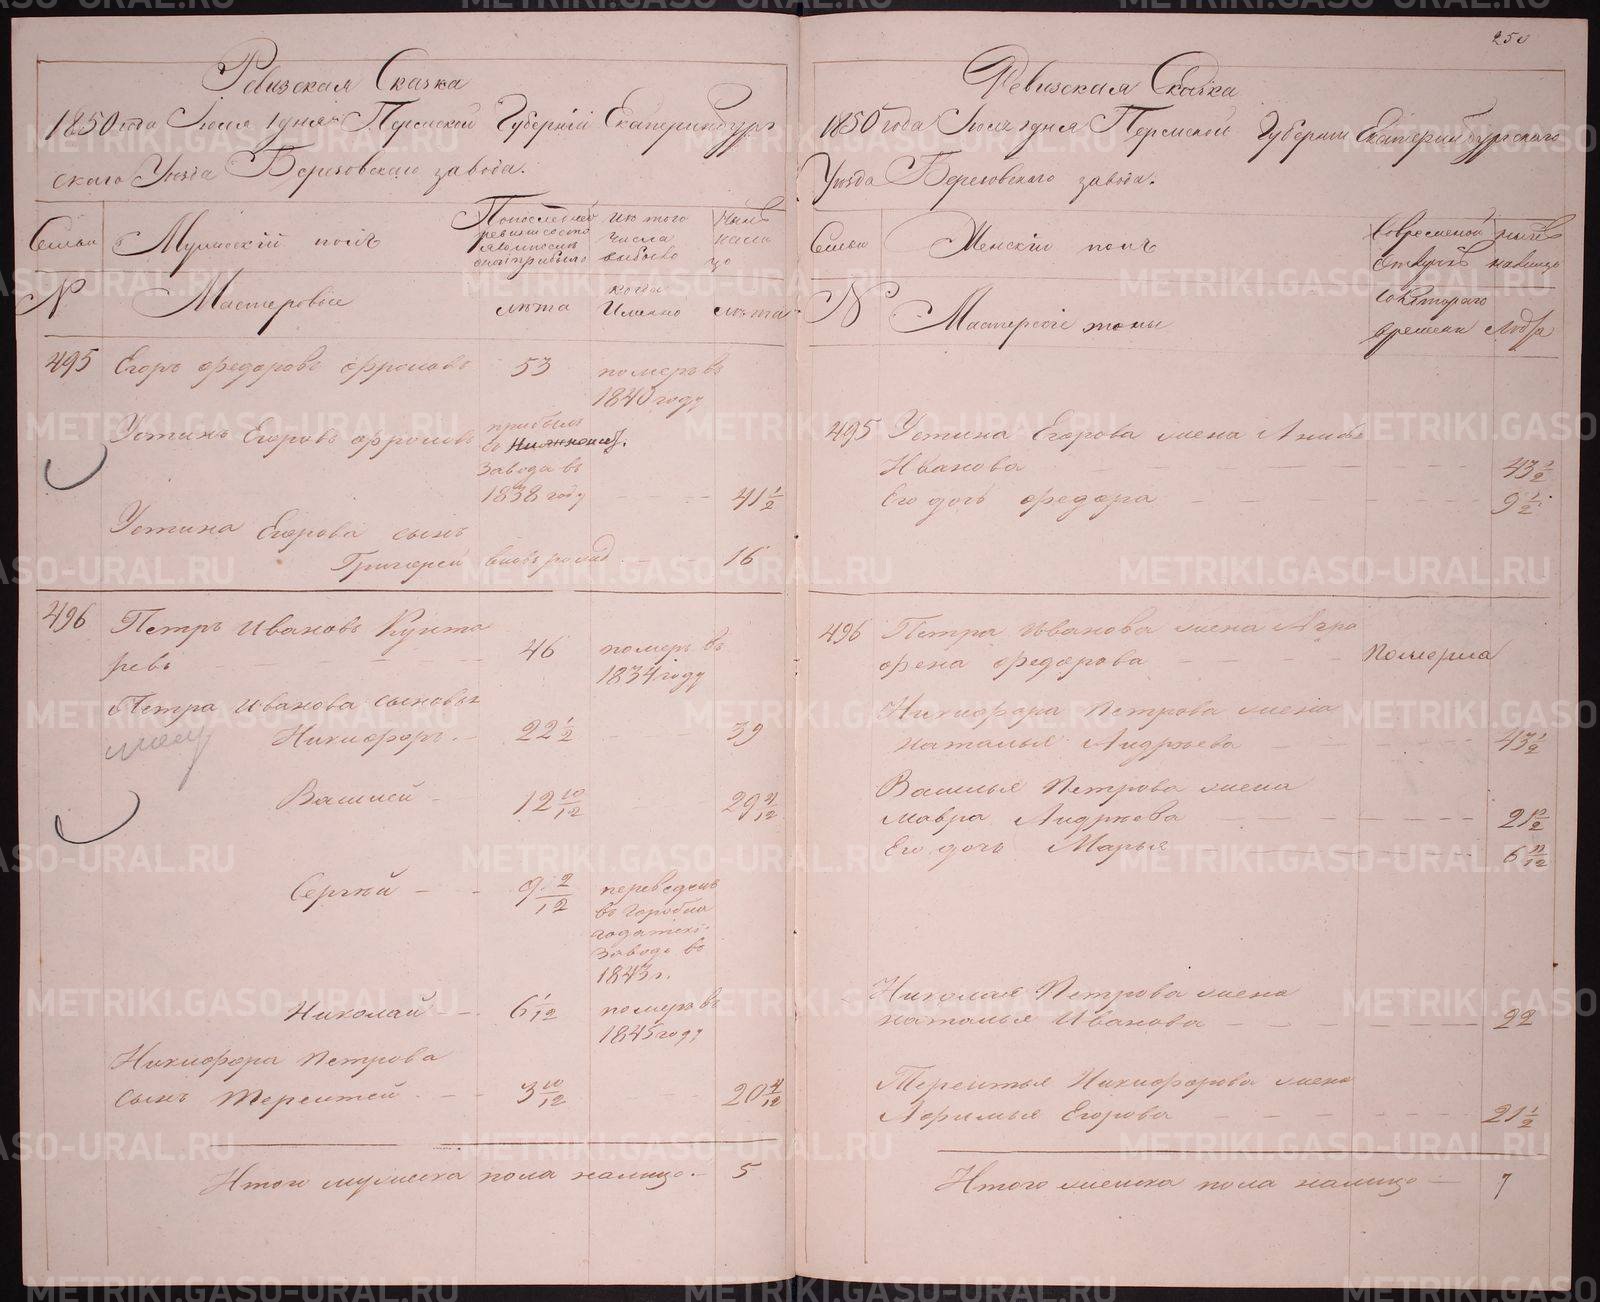 250
Ревизская Сказка
1850 года Июля 1 дня Пермской Губерніи Екатеринбург
скаго Уезда Березовскаго завода.
Семьи Мужескій полъ По последней ревизии состо яло и после оной прибыло Из того числа выбыло Ныне нали цо
№ Мастеровые лета когда Именно лета
495 Егоръ Федоровъ Фроловъ 53 померъ въ
1840 году
Устинъ Егоровъ Фроловъ прибылъ
завода въ
1838 году 41 1/2
Устина Егорова сынъ
Григорей вновь рожд 16
496 Петръ Ивановъ Кухта
ревъ 46 померъ въ
1834 году
Петра Иванова сыновья
Никифоръ 22 1/2 39
Василей 12 10/12 29 4/12
Сергей 9 2/12 переведенъ
въ Гороблагодатскі
заводъ въ
1843 г.
Николай 6 1/12 померъ въ
1845 году
Никифора Петрова
сынъ Терентей 3 10/12 20 4/12
Итого мужеска пола налицо 5
Ревизская Сказка
1850 года Июля 1 дня Пермской Губернии Екатеринбургскаго
Уезда Березовскаго завода.
Семьи Женскій полъ Во временной отлучке ныне налицо
№ Мастерскіе жоны с котораго времени Лета
495 Устина Егорова жена Анна
Иванова 43 1/2
Его дочь Федора 9 1/2
496 Петра Иванова жена Агра
фена Федорова Померла
Никифора Петрова жена
Наталья Андреева 43 1/2
Василья Петрова жена
Мавра Андреева
Его дочь Марья 6 11/12
Николая Петрова жена
Наталья Иванова 22
Терентья Никифорова жена
Афимья Егорова 21 1/2
Итого женска пола налицо 7
METRIKI.GASO-URAL.RU